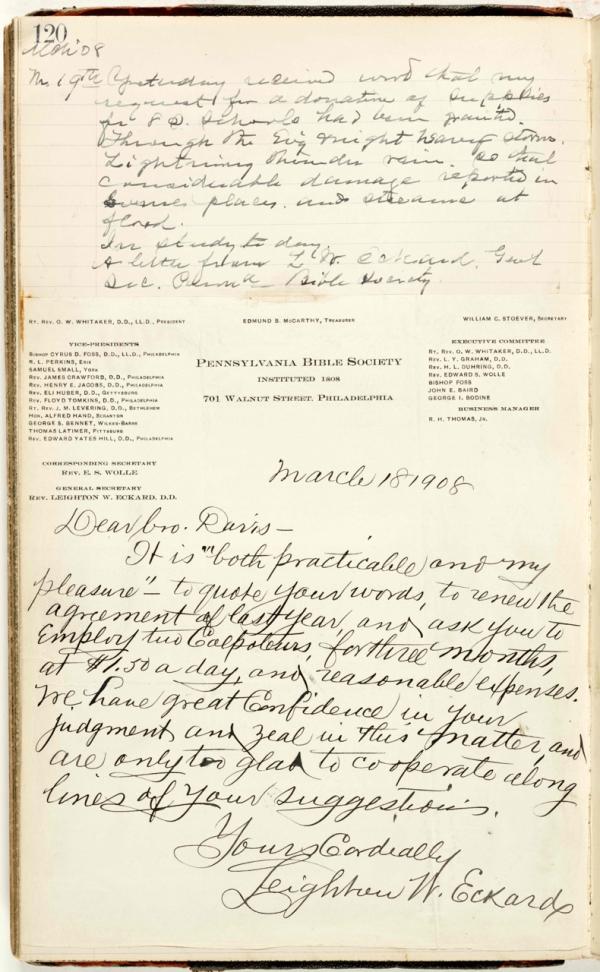 120
Mch '08
Th. 19th Yesterday received word that my
request for a donation of supplies
for 8 S. Schools had been granted.
Through the Eve & night heavy storm.
Lightning thunder rain. so that
considerable damage reported in
some places and streams at
flood.
In study to day.
A letter from L. W. Eckard, Genl
Sec. Penna Bible Society
Rt. Rev. O. W. Whitaker, D.D., LL.D., President
Edmund S. McCarthy, Treasurer
William C. Stoever, Secretary
VICE-PRESIDENTS
Bishop Cyrus D. Foss, D.D., LL.D., Philadelphia
R. L. Perkins, Erie
Samuel Small, York
Rev. James Crawford, D.D., Philadelphia
Rev. Henry E. Jacobs, D.D., Philadelphia
Rev. Eli Huber, D.D., Gettysburg
Rev. Floyd Tomkins, D.D., Philadelphia
Rt. Rev. J. M. Levering, D.D., Bethlehem
Hon. Alfred Hand, Scranton
George S. Bennet, Wilkes-Barre
Thomas Latimer, Pittsburg
Rev. Edward Yates Hill, D.D., Philadelphia
CORRESPONDING SECRETARY
Rev. E. S. Wolle
GENERAL SECRETARY
Rev. Leighton W. Eckard, D.D.
Pennsylvania Bible Society
INSTITUTED 1808
701 Walnut Street, Philadelphia
EXECUTIVE COMMITTEE
Rt. Rev. O. W. Whitaker, D.D., LL.D.
Rev. L. Y. Graham, D.D.
Rev. H. L. Duhring, D.D.
Rev. Edward S. Wolle
Bishop Foss
John E. Baird
George I. Bodine
BUSINESS MANAGER
R. H. Thomas, Jr.
March 18 1908
Dear bro. Davis—
It is "both practicable and my
pleasure"— to quote your words, to renew the
agreement of last year, and ask you to
Employ two Colpoteurs, for three months,
at $1.50 a day, and reasonable expenses.
We have great Confidence in your
judgment and zeal in this matter, and
are only too glad to cooperate along
lines of your suggestions.
Yours Cordially
Leighton W. Eckard